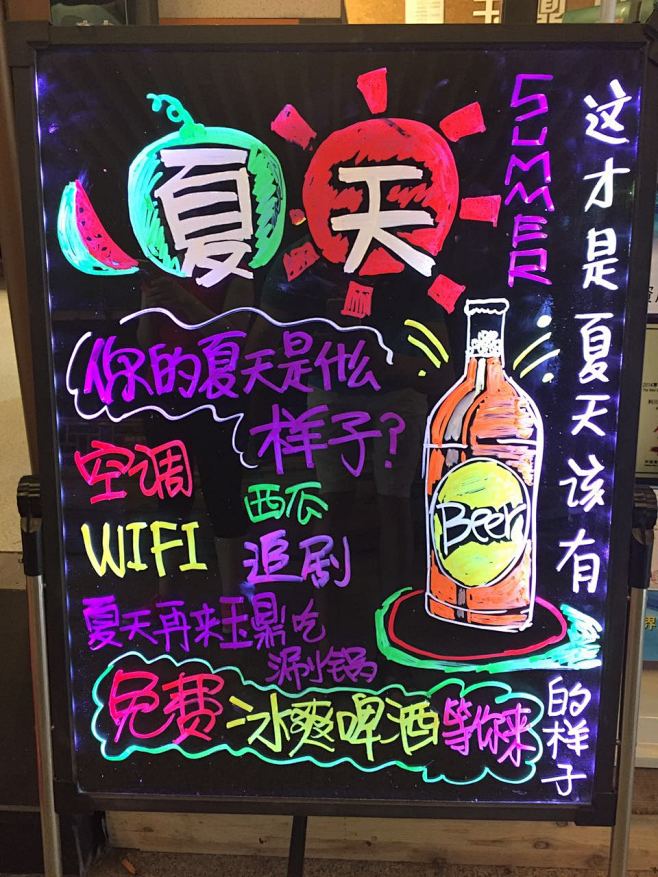 夏天
SUMMER
这才是夏天该有的样子
你的夏天是什么
样子?
空调
西瓜
WIFI
追剧
Beer
夏天再来玉鼎吃
涮小锅
免费冰爽啤酒等你来